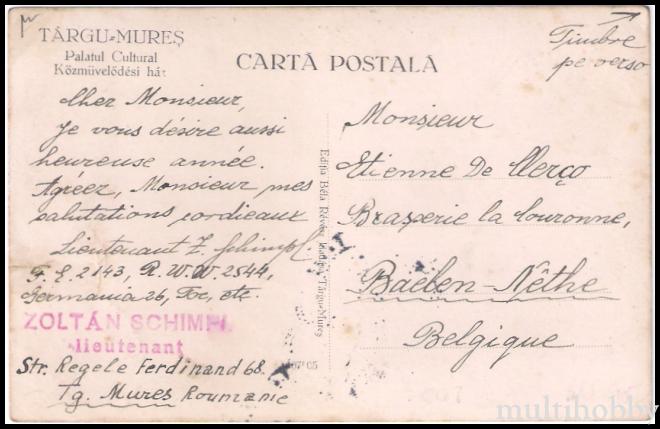 TÂRGU-MUREȘ
Palatul Cultural
Közmüvelődési ház
CARTĂ POSTALĂ
Timbre
pe verso
Cher Monsieur,
Je vous désire aussi
heureuse année.
Agréez, Monsieur mes
salutations cordieaux
Lieutenant Z. Schimpf.
F. E. 2143, R. W. W. 2544,
Germania 26, Toe, etc.
ZOLTÁN SCHIMPF
lieutenant
Str. Regele Ferdinand 68.
Tg. Mures Roumanie
Ediția Béla Révész, Târgu-Mureș
Monsieur
Etienne De Clerço
Brasserie la Couronne,
Baelen-Nêthe
Belgique
multihobby